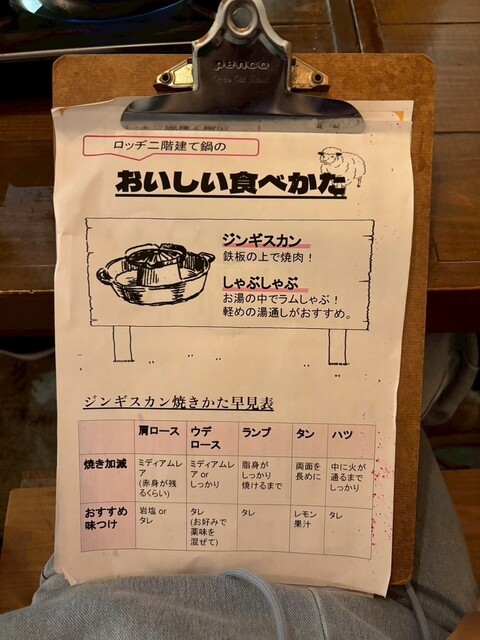 penco
ロッヂ二階建て鍋の
おいしい食べかた
ジンギスカン
鉄板の上で焼肉！
しゃぶしゃぶ
お湯の中でラムしゃぶ！
軽めの湯通しがおすすめ。
ジンギスカン焼きかた早見表
肩ロース ウデロース ランプ タン ハツ
焼き加減 ミディアムレア(赤身が残るくらい) ミディアムレア or しっかり 脂身がしっかり焼けるまで 両面を長めに 中に火が通るまでしっかり
おすすめ味つけ 岩塩 or タレ タレ(お好みで薬味を混ぜて) タレ レモン果汁 タレ